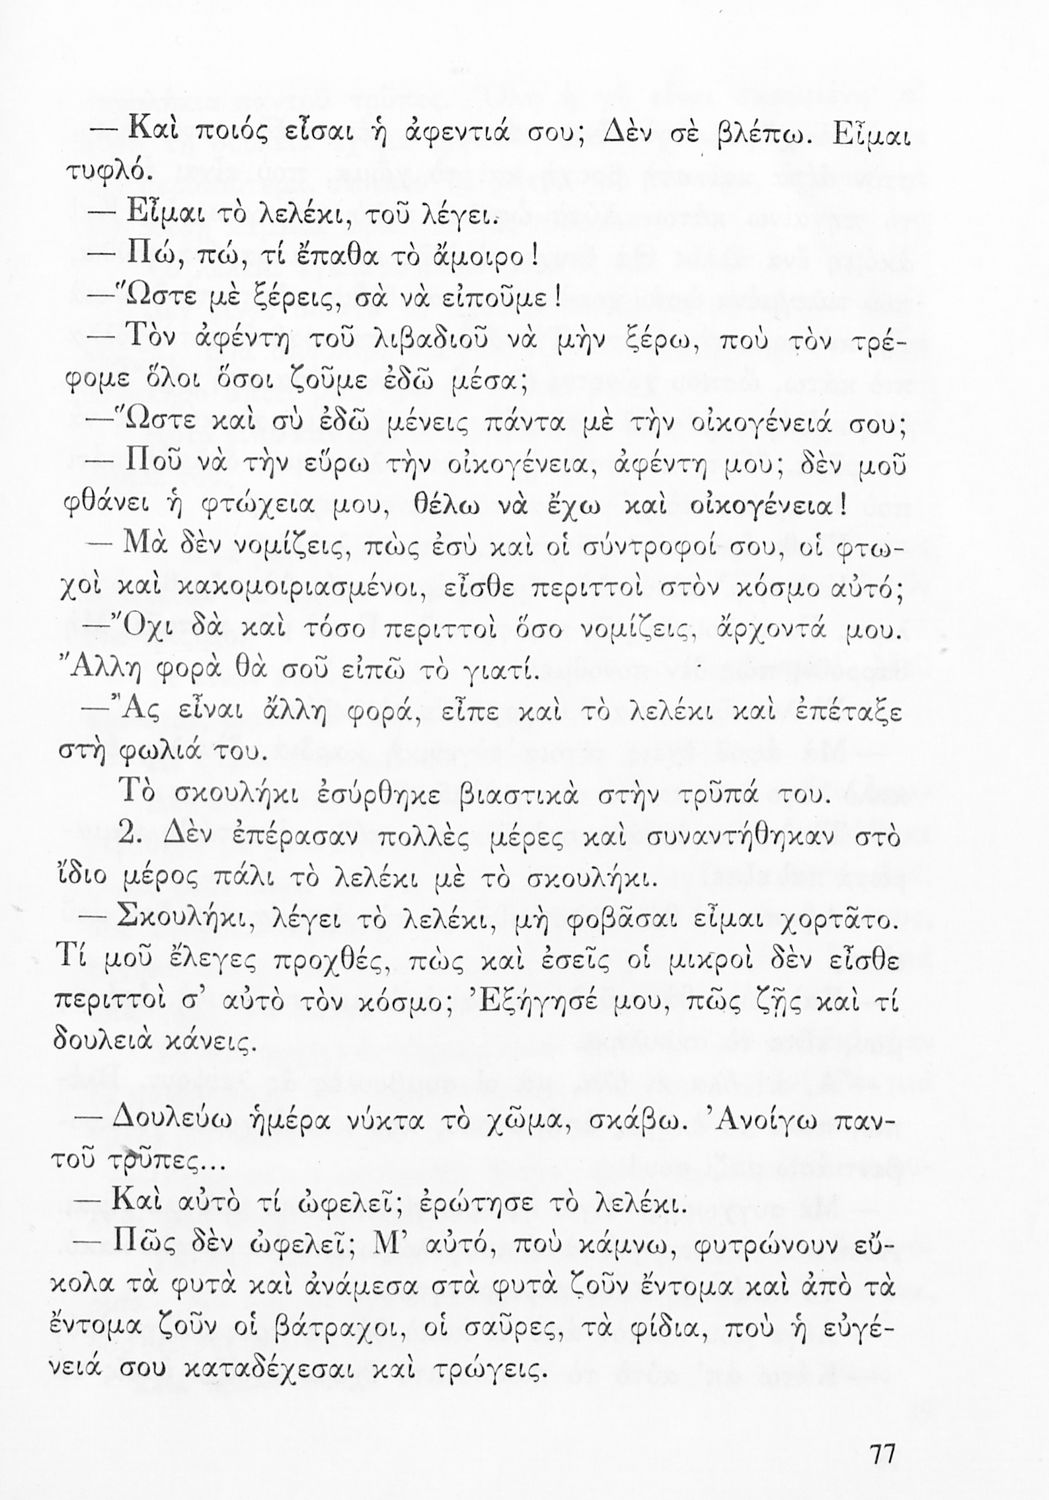 — Καὶ ποιός εἶσαι ἡ ἀφεντιά σου; Δὲν σὲ βλέπω. Εἶμαι
τυφλό.
— Εἶμαι τὸ λελέκι, τοῦ λέγει.
— Πώ, πώ, τί ἔπαθα τὸ ἄμοιρο !
—Ὥστε μὲ ξέρεις, σὰ νὰ εἰποῦμε !
— Τὸν ἀφέντη τοῦ λιβαδιοῦ νὰ μὴν ξέρω, ποὺ τὸν τρέ-
φομε ὅλοι ὅσοι ζοῦμε ἐδῶ μέσα;
—Ὥστε καὶ σὺ ἐδῶ μένεις πάντα μὲ τὴν οἰκογένειά σου;
— Ποῦ νὰ τὴν εὕρω τὴν οἰκογένεια, ἀφέντη μου; δὲν μοῦ
φθάνει ἡ φτώχεια μου, θέλω νὰ ἔχω καὶ οἰκογένεια!
— Μὰ δὲν νομίζεις, πὼς ἐσὺ καὶ οἱ σύντροφοί σου, οἱ φτω-
χοὶ καὶ κακομοιριασμένοι, εἶσθε περιττοὶ στὸν κόσμο αὐτό;
—Ὄχι δὰ καὶ τόσο περιττοὶ ὅσο νομίζεις, ἄρχοντά μου.
Ἄλλη φορὰ θὰ σοῦ εἰπῶ τὸ γιατί.
—Ἂς εἶναι ἄλλη φορά, εἶπε καὶ τὸ λελέκι καὶ ἐπέταξε
στὴ φωλιά του.
Τὸ σκουλήκι ἐσύρθηκε βιαστικὰ στὴν τρῦπά του.
2. Δὲν ἐπέρασαν πολλὲς μέρες καὶ συναντήθηκαν στὸ
ἴδιο μέρος πάλι τὸ λελέκι μὲ τὸ σκουλήκι.
— Σκουλήκι, λέγει τὸ λελέκι, μὴ φοβᾶσαι εἶμαι χορτᾶτο.
Τί μοῦ ἔλεγες προχθές, πὼς καὶ ἐσεῖς οἱ μικροὶ δὲν εἶσθε
περιττοὶ σ’ αὐτὸ τὸν κόσμο; Ἐξήγησέ μου, πῶς ζῇς καὶ τί
δουλειὰ κάνεις.
— Δουλεύω ἡμέρα νύκτα τὸ χῶμα, σκάβω. Ἀνοίγω παν-
τοῦ τρῦπες...
— Καὶ αὐτὸ τί ὠφελεῖ; ἐρώτησε τὸ λελέκι.
— Πῶς δὲν ὠφελεῖ; Μ’ αὐτό, ποὺ κάμνω, φυτρώνουν εὔ-
κολα τὰ φυτὰ καὶ ἀνάμεσα στὰ φυτὰ ζοῦν ἔντομα καὶ ἀπὸ τὰ
ἔντομα ζοῦν οἱ βάτραχοι, οἱ σαῦρες, τὰ φίδια, ποὺ ἡ εὐγέ-
νειά σου καταδέχεσαι καὶ τρώγεις.
77